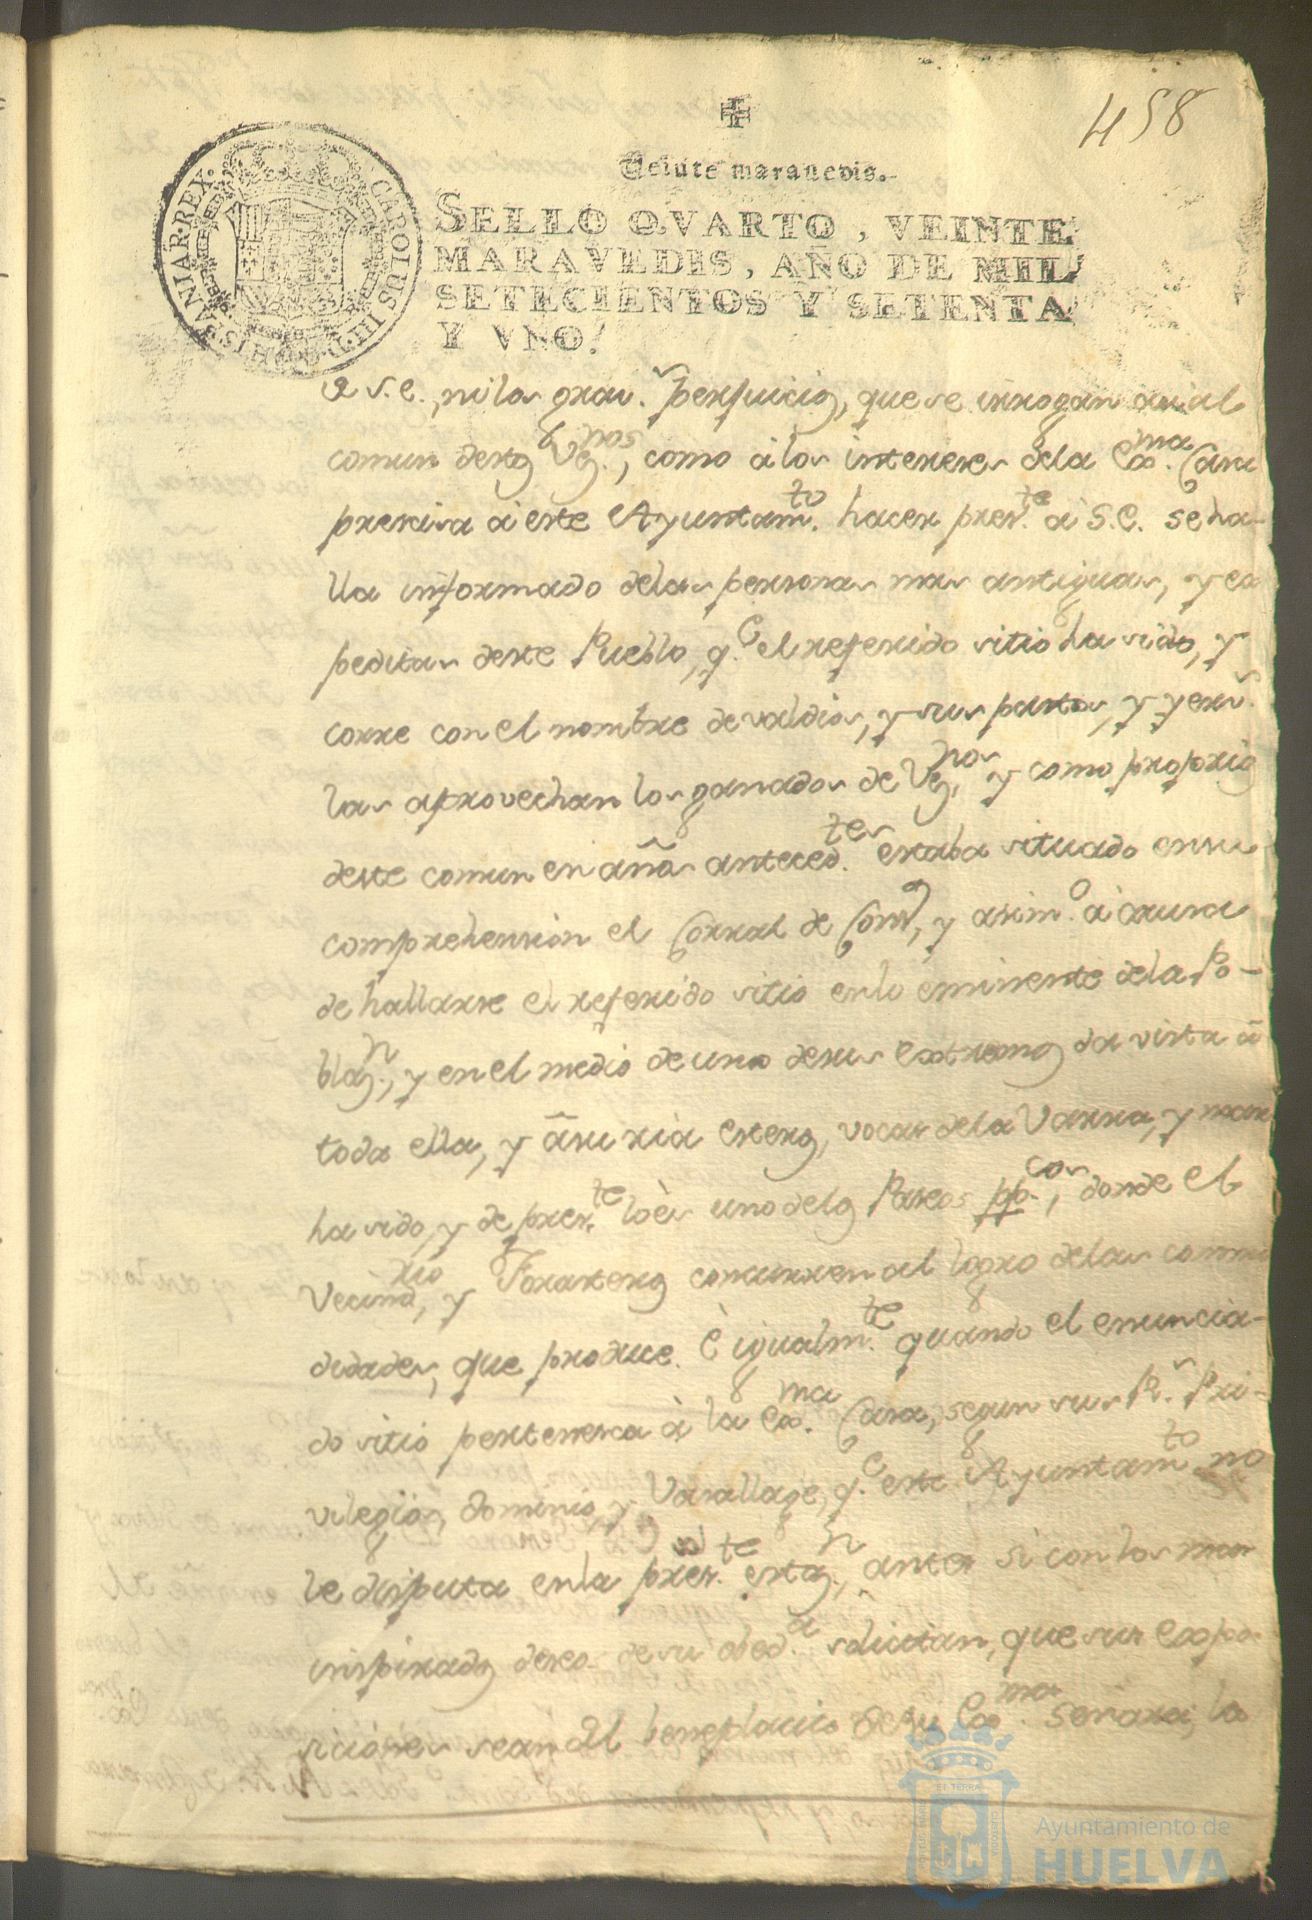 458
Veinte maravedis.
SELLO QVARTO, VEINTE
MARAVEDIS, AÑO DE MIL
SETECIENTOS Y SETENTA
Y VNO.
CAROLUS III D. G. HISPANIAR. REX.
a S.E., ni los grav.s perjuicios, que se irrogan asi al
comun destos Vez.nos, como a los intereses dela Exc.ma Casa
precisa a este Ayuntam.to hacer pres.te a S.E. se ha-
lla informado delas personas mas antiguas, y ex
peditas deste Pueblo, q.e el referido sitio ha sido, y
corre con el nombre de valdios, y sus pastos, y yerv.s
las aprovechan los ganados de Vez.nos, y como proprio
deste comun en años anteced.tes estaba situado en su
comprehension el Corral de Conz.o, y asim.o a causa
de hallarse el referido sitio en lo eminente dela Po-
blaz.n, y en el medio de uno desus extremos da vista a
toda ella, y a su ria esteros, vocas dela Varra, y mar
ha sido, y de pres.te lo es uno delos Paseos pp.cos, donde el
Vecind.rio, y Forasteros concurren al logro delas como
didades, que produce. E igualm.te quando el enuncia-
do sitio pertenesca à la Exc.ma Casa, segun sus R.s Pri-
vilegios, dominio, y Vasallage, q.e este Ayuntam.to no
le disputa en la pres.te estaz.n, antes si con los mas
inspirados deseos de su obed.a solicitan, que sus expo-
siciones sean del beneplacito de su Exc.ma Señora, la
Ayuntamiento de
HUELVA